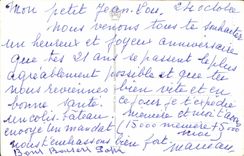 Mon petit Jean-Lou. 24 octobre
Nous venons tous te souhaiter
un heureux et joyeux anniversaire
que tes 21 ans se passent le plus
agréablement possible et que tu
nous reviennes bien vite et en
bonne santé. ce jour je t'expédie
un colis. mémère et moi t'avons
envoyé un mandat (15000 mémère + 5000
nous t'embrassons bien fort.
Bons Baisers